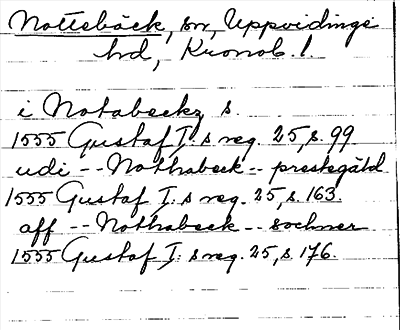 Nottebäck, sn, Uppvidinge
hd, Kronob. l.
i Notabeckz s.
1555 Gustaf I:s reg. 25, s. 99
udi -- Nothabeck -- prestegåld
1555 Gustaf I:s reg. 25, s. 163.
aff -- Nothabeck -- sochner
1555 Gustaf I:s reg. 25, s. 176.